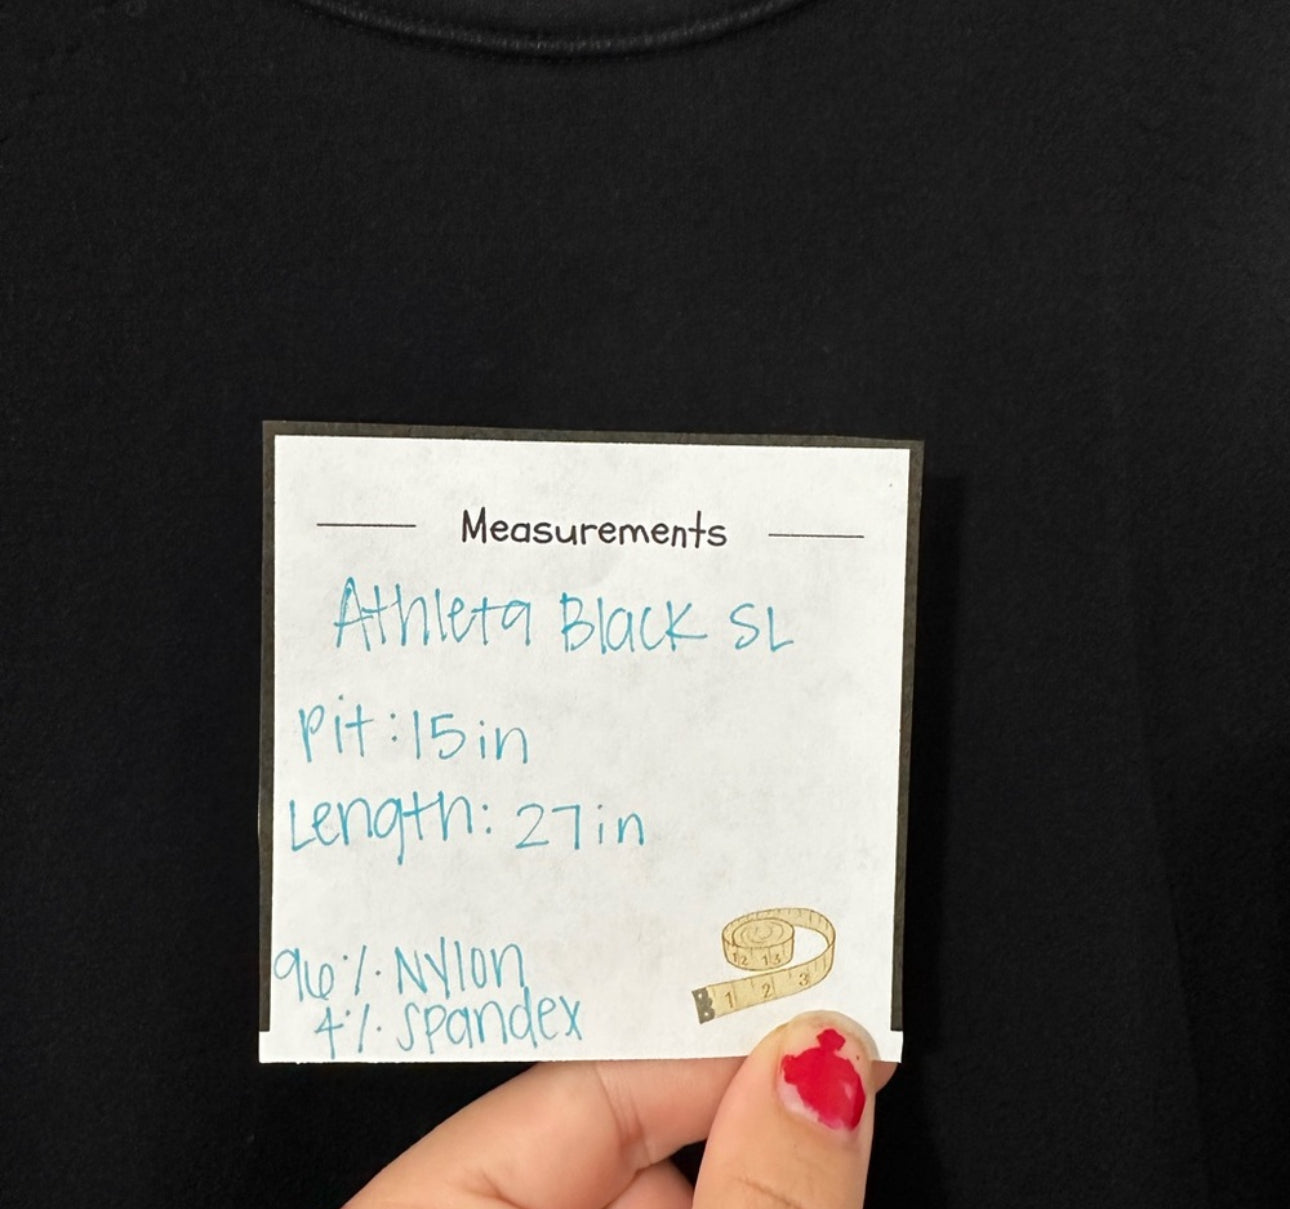 Measurements
Athleta Black SL
Pit: 15in
Length: 27in
96% Nylon
4% Spandex
12 13
1 2 3